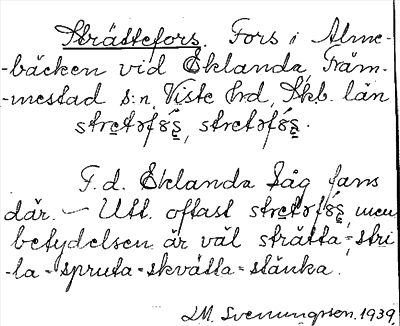 Strättefors. Fors i Alme-
-bäcken vid Eklanda, Främ-
-mestad s:n, Viste hrd, Skb. län
stretəfo̯s̱, stretəfo̯s̱.
F.d. Eklanda såg fans
där. — Utt. oftast stretəfo̯s̱, men
betydelsen är väl strätta = stri
-la = spruta = skvätta = stänka.
LM. Svenungsson. 1939.